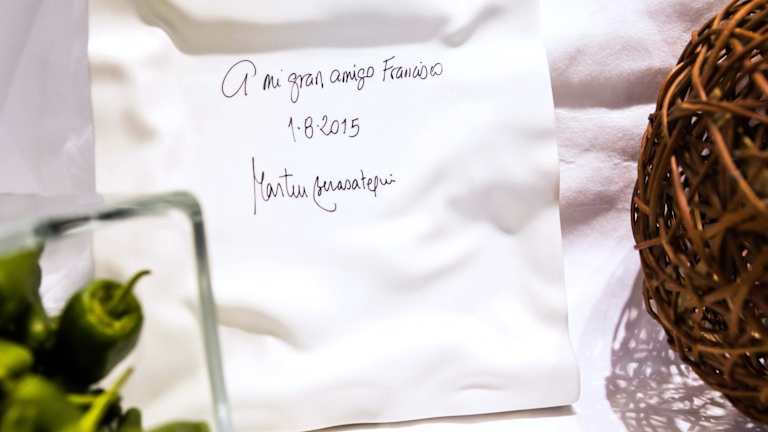 A mi gran amigo Francisco
1.8.2015
Martin Berasategui